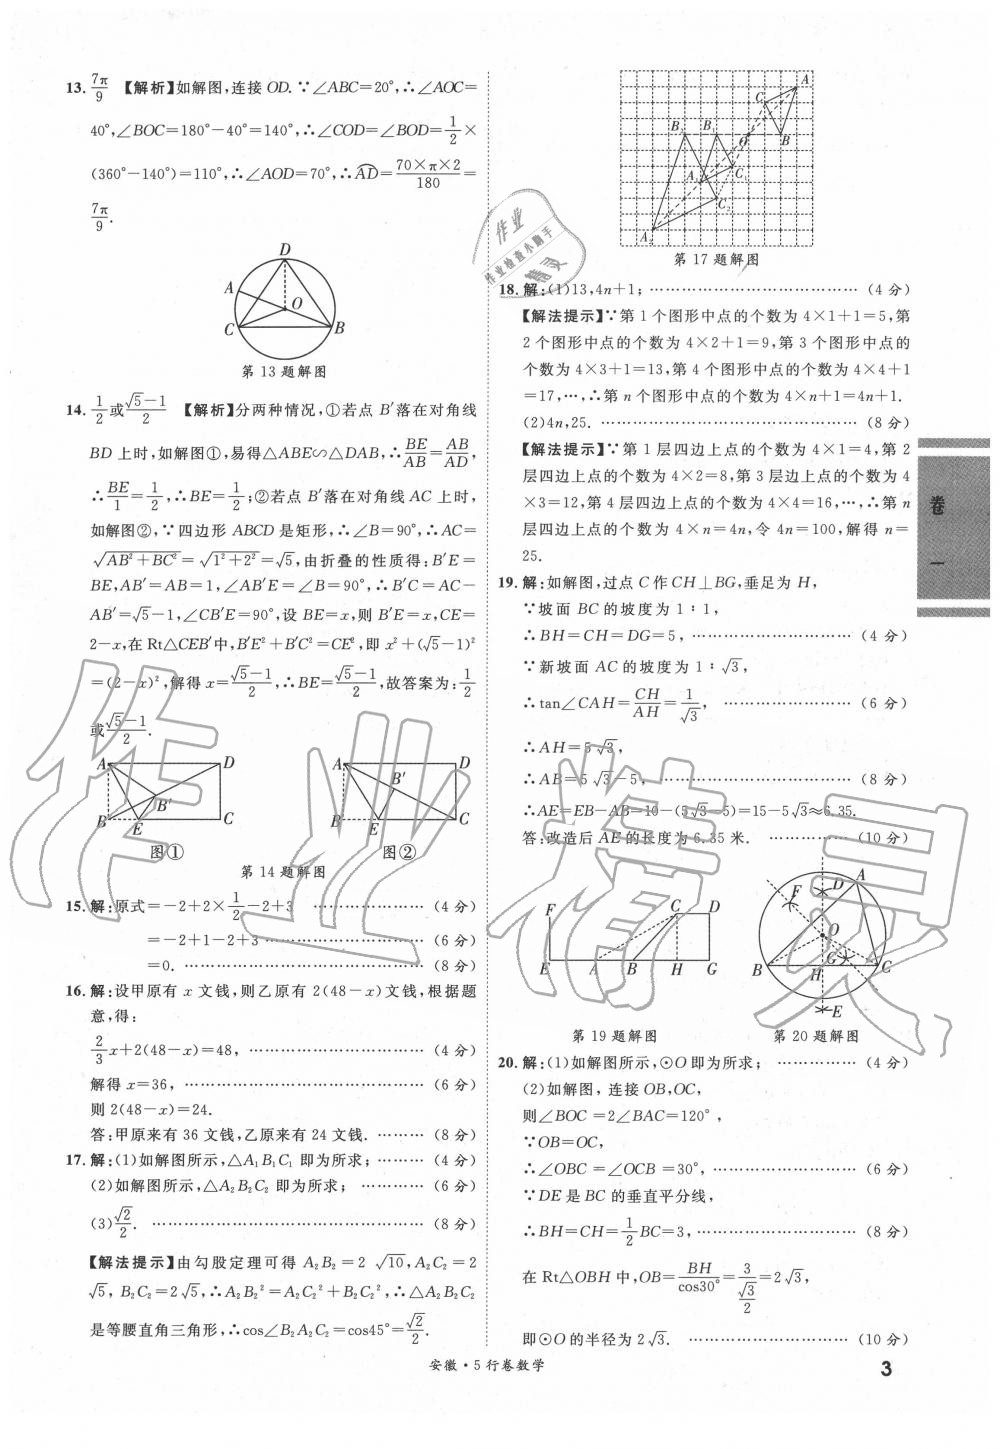 13. 7π/9 【解析】如解图,连接 OD.∵∠ABC=20°,∴∠AOC=
40°,∠BOC=180°-40°=140°,∴∠COD=∠BOD=1/2×
(360°-140°)=110°,∴∠AOD=70°,∴AD⌒=70×π×2/180=
7π/9.
D
A
O
C
B
第 13 题解图
14. 1/2或(√5-1)/2 【解析】分两种情况,①若点 B′落在对角线
BD 上时,如解图①,易得△ABE∽△DAB,∴BE/AB=AB/AD,
∴BE/1=1/2,∴BE=1/2;②若点 B′落在对角线 AC 上时,
如解图②,∵四边形 ABCD 是矩形,∴∠B=90°,∴AC=
√(AB²+BC²)=√(1²+2²)=√5,由折叠的性质得:B′E=
BE,AB′=AB=1,∠AB′E=∠B=90°,∴B′C=AC-
AB′=√5-1,∠CB′E=90°,设 BE=x,则 B′E=x,CE=
2-x,在 Rt△CEB′中,B′E²+B′C²=CE²,即 x²+(√5-1)²
=(2-x)²,解得 x=(√5-1)/2,∴BE=(√5-1)/2,故答案为:1/2
或(√5-1)/2.
A D B′ B E C
图①
A D B′ B E C
图②
第 14 题解图
15. 解:原式=-2+2×1/2-2+3 …………………(4 分)
=-2+1-2+3 …………………(6 分)
=0. …………………(8 分)
16. 解:设甲原有 x 文钱,则乙原有 2(48-x)文钱,根据题
意,得:
2/3x+2(48-x)=48, …………………(4 分)
解得 x=36, …………………(6 分)
则 2(48-x)=24.
答:甲原来有 36 文钱,乙原来有 24 文钱. ………(8 分)
17. 解:(1)如解图所示,△A₁B₁C₁ 即为所求; ………(4 分)
(2)如解图所示,△A₂B₂C₂ 即为所求; …………(6 分)
(3)√2/2. …………………(8 分)
【解法提示】由勾股定理可得 A₂B₂=2√10,A₂C₂=2
√5, B₂C₂=2√5,∴A₂B₂²=A₂C₂²+B₂C₂²,∴△A₂B₂C₂
是等腰直角三角形,∴cos∠B₂A₂C₂=cos45°=√2/2.
A
C
B₂ B₁ O B
A₁ C₁
C₂
A₂
第 17 题解图
18. 解:(1)13,4n+1; …………………(4 分)
【解法提示】∵第 1 个图形中点的个数为 4×1+1=5,第
2 个图形中点的个数为 4×2+1=9,第 3 个图形中点的
个数为 4×3+1=13,第 4 个图形中点的个数为 4×4+1
=17,…,∴第 n 个图形中点的个数为 4×n+1=4n+1.
(2)4n,25. …………………(8 分)
【解法提示】∵第 1 层四边上点的个数为 4×1=4,第 2
层四边上点的个数为 4×2=8,第 3 层边上点的个数为 4
×3=12,第 4 层四边上点的个数为 4×4=16,…,∴第 n
层四边上点的个数为 4×n=4n,令 4n=100,解得 n=
25.
19. 解:如解图,过点 C 作 CH⊥BG,垂足为 H,
∵坡面 BC 的坡度为 1∶1,
∴BH=CH=DG=5, …………………(4 分)
∵新坡面 AC 的坡度为 1∶√3,
∴tan∠CAH=CH/AH=1/√3, …………………(6 分)
∴AH=5√3,
∴AB=5√3-5, …………………(8 分)
∴AE=EB-AB=10-(5√3-5)=15-5√3≈6.35.
答:改造后 AE 的长度为 6.35 米. …………(10 分)
F C D
E A B H G
第 19 题解图
A
F D
O
G
B H C
E
第 20 题解图
20. 解:(1)如解图所示,⊙O 即为所求; …………(4 分)
(2)如解图, 连接 OB,OC,
则∠BOC=2∠BAC=120°,
∵OB=OC,
∴∠OBC=∠OCB=30°, …………………(6 分)
∵DE 是 BC 的垂直平分线,
∴BH=CH=1/2BC=3, …………………(8 分)
在 Rt△OBH 中,OB=BH/cos30°=3/(√3/2)=2√3,
即⊙O 的半径为 2√3. …………………(10 分)
卷
一
作业
作业检查小助手
精灵
作业精灵
安徽·5 行卷数学
3